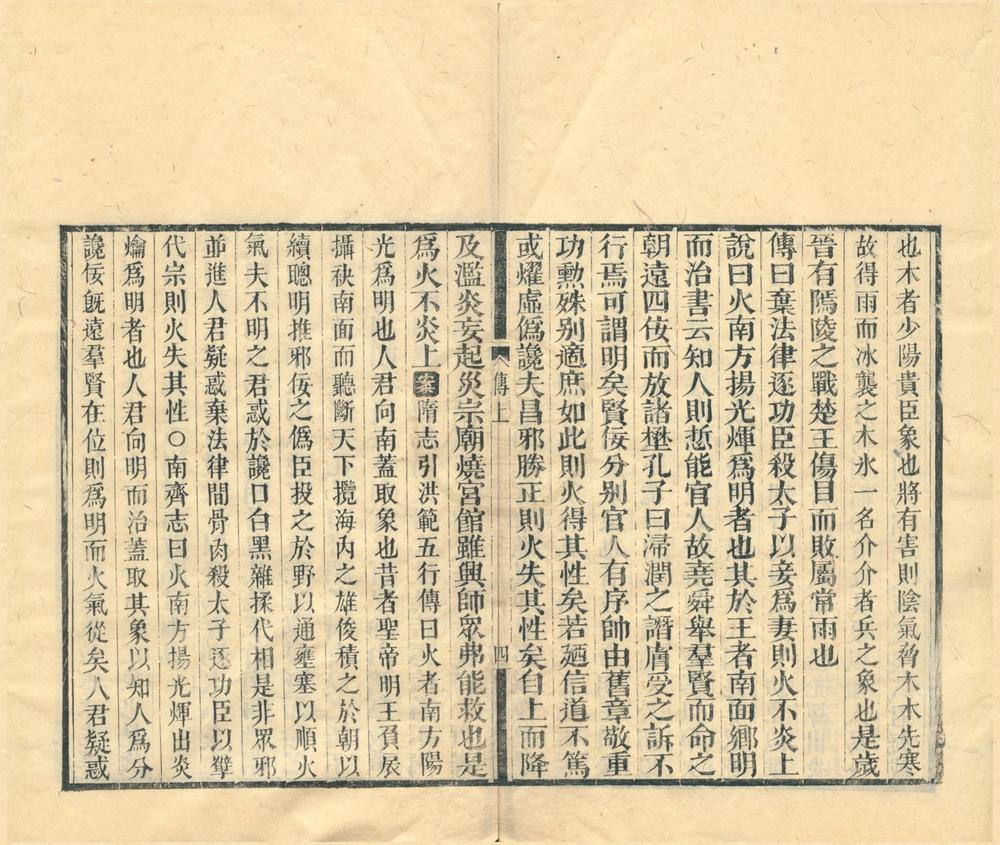 也木者少陽貴臣象也將有害則陰氣脅木木先寒
故得雨而冰襲之木氷一名介介者兵之象也是歲
晉有隝陵之戰楚王傷目而敗屬常雨也
傳曰棄法律逐功臣殺太子以妾爲妻則火不炎上
說曰火南方揚光煇爲明者也其於王者南面鄉明
而治書云知人則悊能官人故堯舜舉羣賢而命之
朝遠四佞而放諸壄孔子曰浸潤之譖膚受之訴不
行焉可謂明矣賢佞分别官人有序帥由舊章敬重
功勳殊别適庶如此則火得其性矣若廼信道不篤
或燿虛僞讒夫昌邪勝正則火失其性矣自上而降
傳上
四
及濫炎妄起災宗廟燒宮館雖興師眾弗能救也是
爲火不炎上案隋志引洪範五行傳曰火者南方陽
光爲明也人君向南蓋取象也昔者聖帝明王負扆
攝袂南面而聽斷天下攬海內之雄俊積之於朝以
續聰明推邪佞之僞臣投之於野以通壅塞以順火
氣夫不明之君惑於讒口白黑雜揉代相是非眾邪
並進人君疑惑棄法律間骨肉殺太子逐功臣以孼
代宗則火失其性○南齊志曰火南方揚光煇出炎
爚爲明者也人君向明而治蓋取其象以知人爲分
讒佞旣遠羣賢在位則爲明而火氣從矣人君疑惑